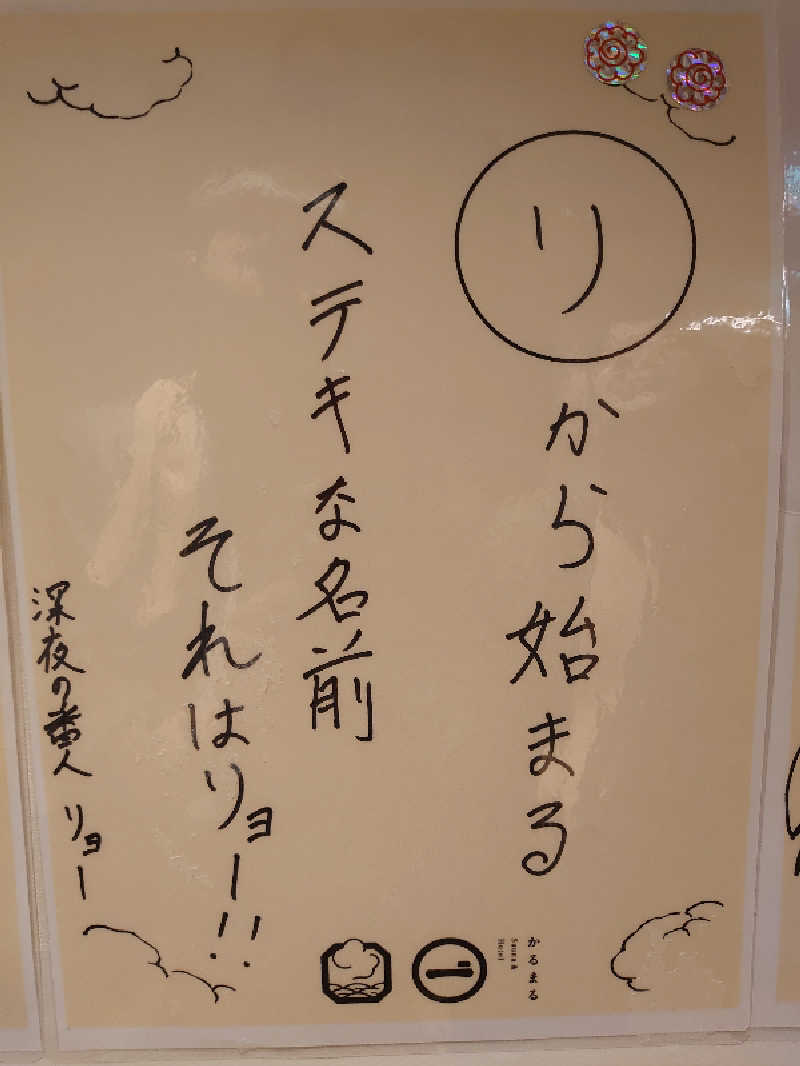 リから始まる
ステキな名前
それはリョー!!
深夜の番人 リョー
かるまる
Sauna &
Hotel